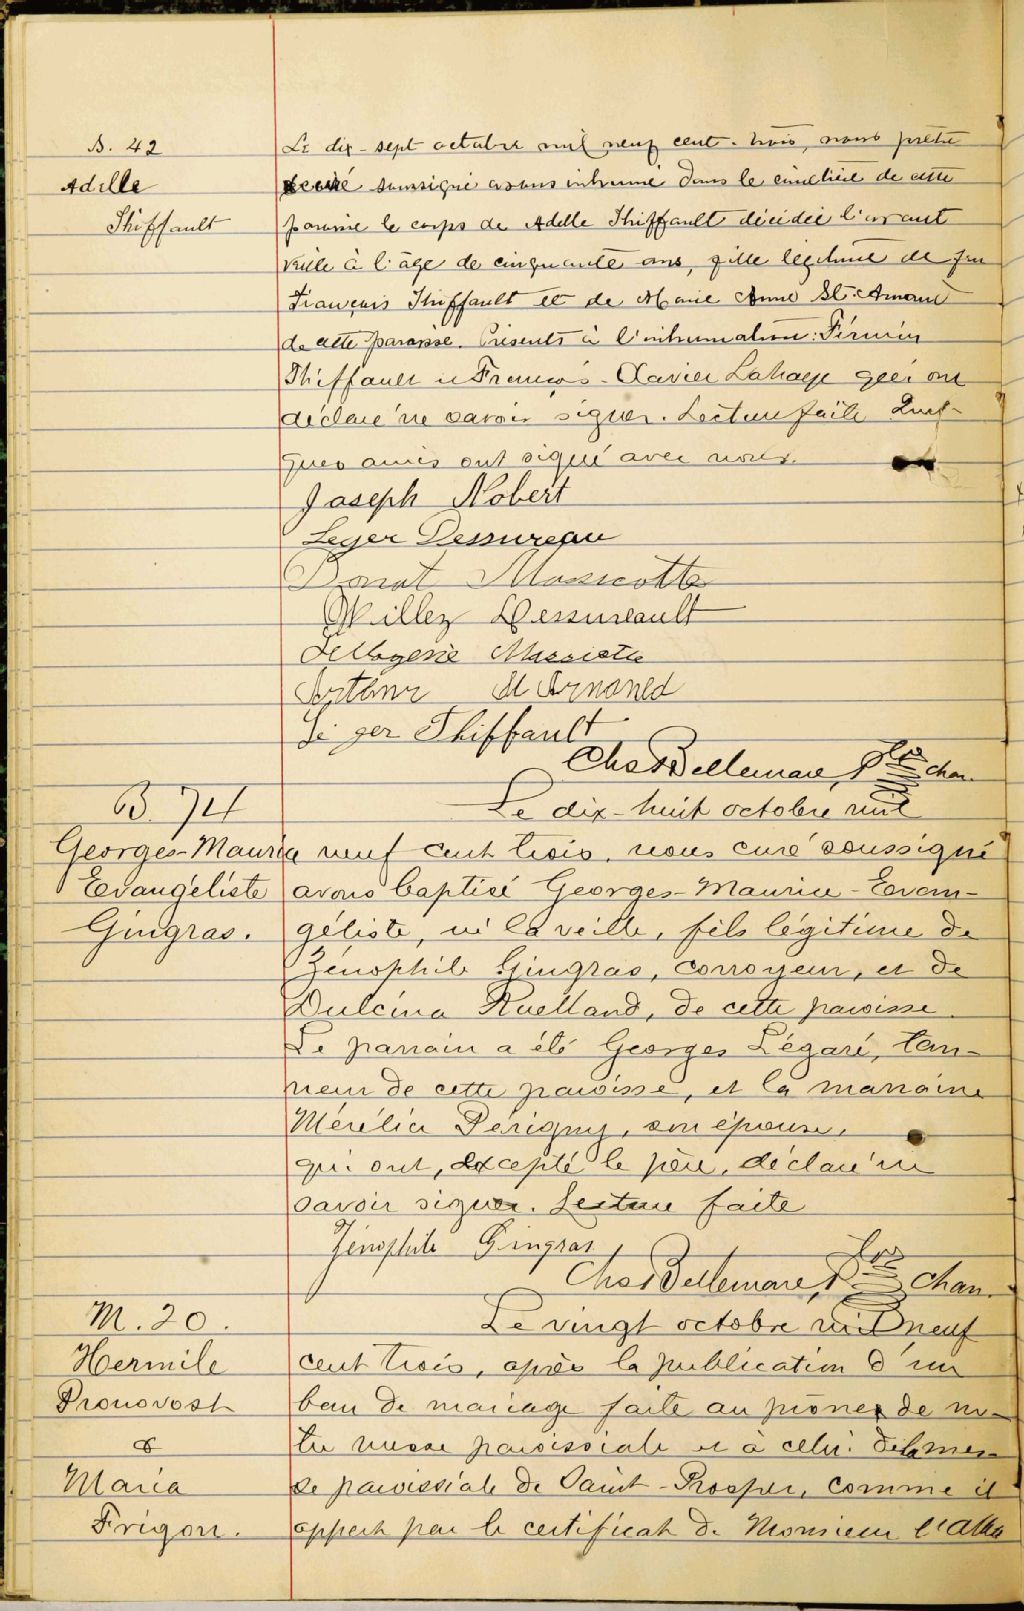 S. 42
Adelle
Thiffault
Le dix-sept octobre mil neuf cent-trois, nous prêtre
curé soussigné avons inhumé dans le cimetière de cette
paroisse le corps de Adelle Thiffault décédée l'avant
veille à l'âge de cinquante ans, fille légitime de feu
François Thiffault et de Marie Anne St-Amand
de cette paroisse. Présents à l'inhumation: Firmin
Thiffault et François-Xavier Lahaye qui ont
déclaré ne savoir signer. Lecture faite Quel-
ques amis ont signé avec nous.
Joseph Nobert
Leger Dessureau
Donat Massicotte
Willez Dessureault
Massicotte
Arthur St Arnaned
Léger Thiffault
Chs Bellemare, Ptre chan.
B. 74
Georges-Maurice
Evangéliste
Gingras.
Le dix-huit octobre mil
neuf cent trois, nous curé soussigné
avons baptisé Georges-Maurice-Evan-
géliste, né la veille, fils légitime de
Zénophile Gingras, corroyeur, et de
Dulcina Ruelland, de cette paroisse.
Le parrain a été Georges Légaré, tan-
neur de cette paroisse, et la marraine
Mérélia Périgny, son épouse,
qui ont, excepté le père, déclaré ne
savoir signer. Lecture faite
Zénophile Gingras
Chs Bellemare, Ptre Chan.
M. 20.
Hermile
Pronovost
&
Maria
Frigon.
Le vingt octobre mil neuf
cent trois, après la publication d'un
ban de mariage faite au prône de no-
tre messe paroissiale et à celui de la mes-
se paroissiale de Saint-Prosper, comme il
appert par le certificat de Monsieur l'abbé